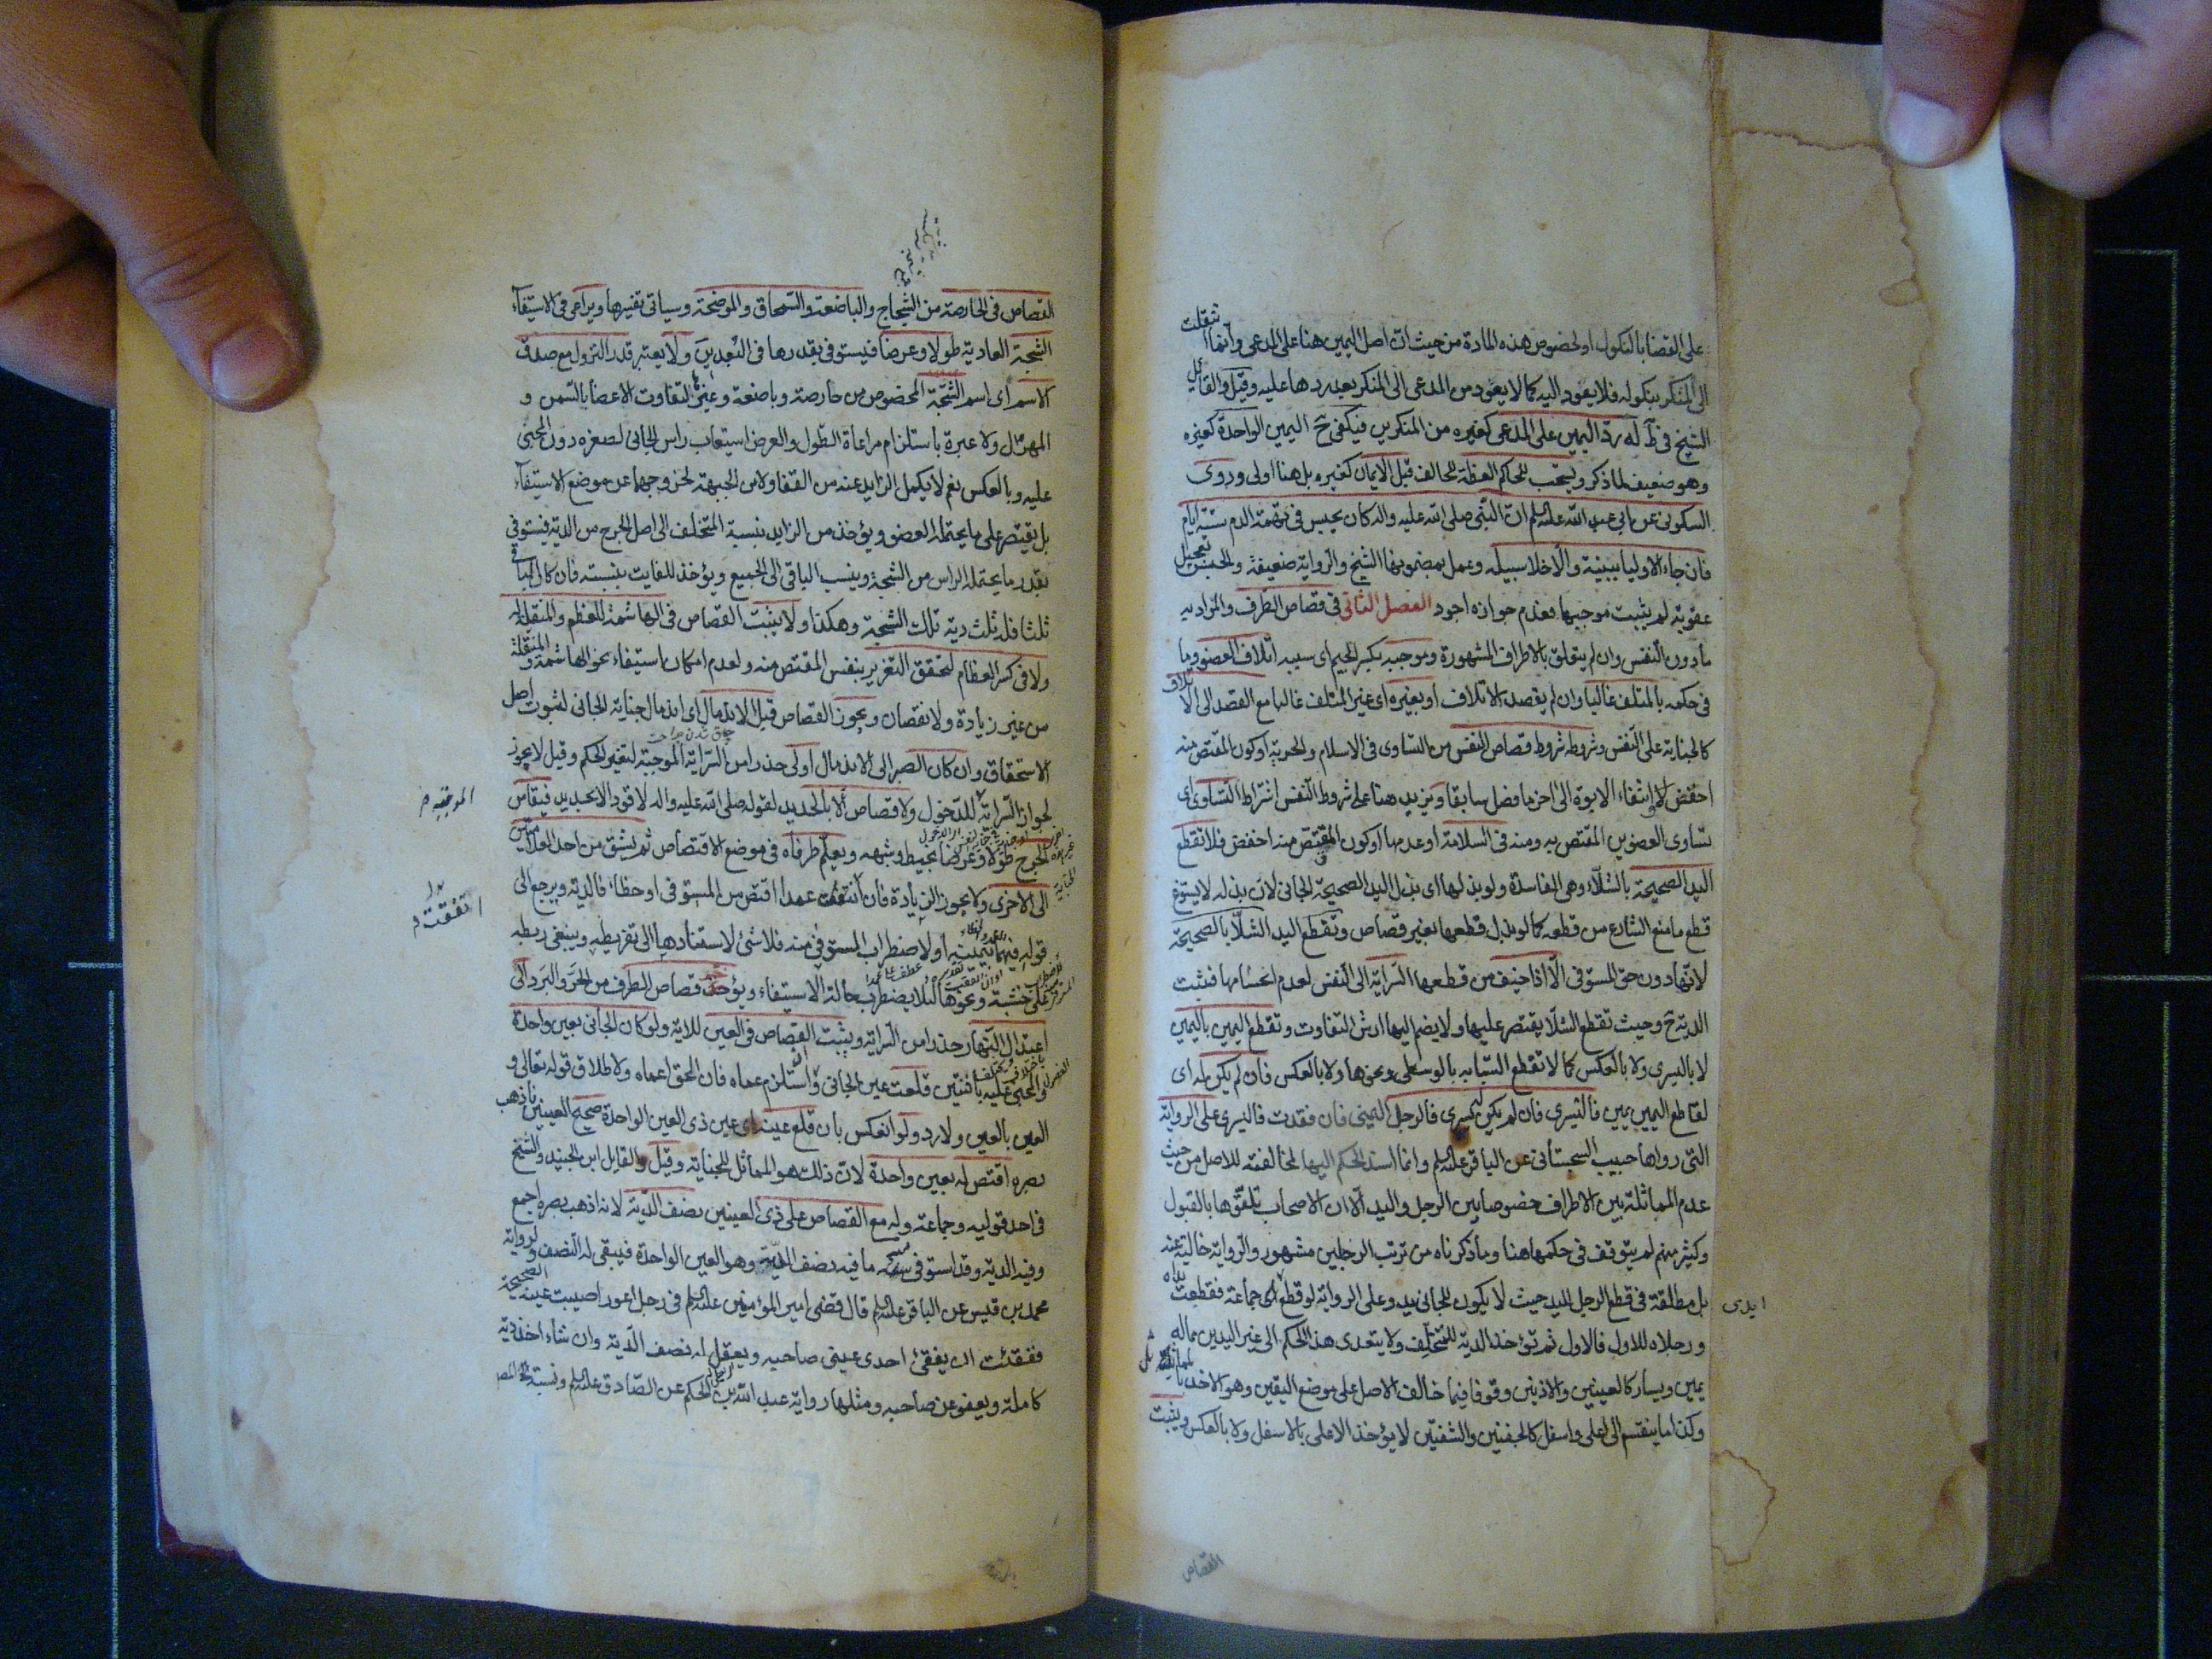 على القضا بالنكول او لخصوص هذه المادة من حيث ان اصل اليمين هنا على المدعى وانما انتقلت
الى المنكر بنكوله فلا يعود اليه كما لا يعود من المدعى الى المنكر بعد ردها عليه وقيل والقائل
الشيخ في ط له رد اليمين على المدعى كغيره من المنكرين فيكفى ح اليمين الواحدة كغيره
وهو ضعيف لما ذكر ويستحب للحاكم العظة للحالف قبل الايمان كغيره بل هنا اولى وروى
السكونى عن ابى عبد الله عليه السلم ان النبى صلى الله عليه واله كان يحبس فى تهمة الدم ستة ايام
فان جاء الاوليا ببينة والا خلا سبيله وعمل بمضمونها الشيخ والرواية ضعيفة والحبس تعجيل
عقوبة لم يثبت موجبها فعدم جوازه اجود الفصل الثانى فى قصاص الطرف والمراد به
ما دون النفس وان لم يتعلق بالاطراف المشهورة وموجبه بكسر الجيم اى سببه اتلاف العضو وما
فى حكمه بالمتلف غالبا وان لم يقصد الاتلاف او بغيره اى غير المتلف غالبا مع القصد الى الاتلاف
كالجناية على النفس وشروطه شروط قصاص النفس من التساوى فى الاسلام والحرية او كون المقتص منه
اخفض وانتفاء الابوة الى اخر ما فصل سابقا ويزيد هنا على شروط النفس اشتراط التساوى اى
تساوى العضوين المقتص به ومنه فى السلامة او عدمها او كون المقتص منه اخفض فلا تقطع
اليد الصحيحة بالشلاء وهى الفاسدة ولو بذلها اى بذل اليد الصحيحة الجانى لان بذله لا يسوغ
قطع ما منع الشارع من قطعه كما لو بذل قطعها بغير قصاص وتقطع اليد الشلا بالصحيحة
لانها دون حق المستوفى الا اذا خيف من قطعها السراية الى النفس لعدم انحسامها فيثبت
الدية ح وحيث تقطع الشلا يقتصر عليها ولا يضم اليها ارش التفاوت وتقطع اليمين باليمين
لا باليسرى ولا بالعكس كما لا تقطع السبابه بالوسطى ونحوها ولا بالعكس فان لم يكن له اى
لقاطع اليمين يمين فاليسرى فان لم يكن له يسرى فالرجل اليمنى فان فقدت فاليسرى على الرواية
التى رواها حبيب السجستانى عن الباقر عليه السلم وانما اسند الحكم اليها لمخالفته للاصل من حيث
عدم المماثلة بين الاطراف خصوصا بين الرجل واليد الا ان الاصحاب تلقوها بالقبول
وكثير منهم لم يتوقف فى حكمها هنا وما ذكرناه من ترتب الرجلين مشهور والرواية خالية عنه
بل مطلقة فى قطع الرجل لليد حيث لا يكون للجانى يد وعلى الرواية لو قطع ايدى جماعة فقطعت يداه
ايدى
ورجلاه للاول فالاول ثم تؤخذ الدية للمتخلف ولا يتعدى هذا الحكم الى غير اليدين مما له
يمين ويسار كالعينين والاذنين وقوفا فيما خالف الاصل على موضع اليقين وهو الاخذ بالمماثل
وكذا ما ينقسم الى اعلى واسفل كالجفنين والشفتين لا يؤخذ الاعلى بالاسفل ولا بالعكس ويثبت
القصاص
القصاص فى الحارصة من الشجاج والباضعة والسمحاق والموضحة وسياتى تفسيرها ويراعى فى الاستيفاء
الشجة العادية طولا وعرضا فيستوفى بقدرها فى البعدين ولا يعتبر قدر النزول مع صدق
الاسم اى اسم الشجة المخصوص من حارصة وباضعة وغيرها لتفاوت الاعضا بالسمن و
المهزال ولا عبرة باستلزام مراعاة الطول والعرض استيعاب راس الجانى لصغره دون المجنى
عليه وبالعكس نعم لا يكمل الزايد عنه من القفا ولا من الجبهة لخروجهما عن موضع الاستيفاء
بل يقتصر على ما يحتمله العضو ويؤخذ من الزايد بنسبة المتخلف الى اصل الجرح من الدية فيستوفى
بقدر ما يحتمله الراس من الشجة وينسب الباقى الى الجميع ويؤخذ للفايت بنسبته فان كان الباقى
ثلثا فله ثلث دية تلك الشجة وهكذا ولا يثبت القصاص فى الهاشمة للعظم والمنقلة له
ولا فى كسر العظام لتحقق التغرير بنفس المقتص منه ولعدم امكان استيفاء نحو الهاشمة والمنقلة
من غير زيادة ولا نقصان ويجوز القصاص قبل الاندمال اى اندمال جناية الجانى لثبوت اصل
الاستحقاق وان كان الصبر الى الاندمال اولى حذرا من السراية الموجبة لتغير الحكم وقيل لا يجوز
لجواز السراية للدخول ولا قصاص الا بالحديد لقوله صلى الله عليه واله لا قود الا بحديد فيقاس
الجرح طولا وعرضا بخيط وشبهه ويعلم طرفاه فى موضع الاقتصاص ثم يشق من احد العلامتين
الى الاخرى ولا يجوز الزيادة فان اتفقت عمدا اقتص من المستوفى او خطاء فالدية ويرجع الى
قوله فيهما بيمينه او لاضطراب المستوفى منه فلا شئ لاستنادها الى تفريطه وينبغى ربطه
على خشبة ونحوها لئلا يضطرب حالة الاستيفاء ويؤخر قصاص الطرف من الحر والبرد الى
اعتدال النهار حذرا من السراية ويثبت القصاص فى العين للاية ولو كان الجانى بعين واحدة
والمجنى عليه باثنتين قلعت عين الجانى وان استلزم عماه فان الحق اعماه ولاطلاق قوله تعالى و
العين بالعين ولا رد ولو انعكس بان قلع عينه اى عين ذى العين الواحدة صحيح العينين فاذهب
بصره اقتص له بعين واحدة لان ذلك هو المماثل للجناية وقيل والقايل ابن الجنيد والشيخ
فى احد قوليه وجماعة وله مع القصاص على ذى العينين نصف الدية لانه اذهب بصره اجمع
وفيه الدية وقد استوفى منه ما فيه نصف الدية وهو العين الواحدة فيبقى له النصف ولرواية
محمد بن قيس عن الباقر عليه السلم قال قضى امير المؤمنين عليه السلم فى رجل اعور اصيبت عينه الصحيحة
ففقئت ان يفقئ احدى عينى صاحبه ويعقل له نصف الدية وان شاء اخذ دية
كاملة ويعفو عن صاحبه ومثلها رواية عبد الله بن الحكم عن الصادق عليه السلم ونسبة